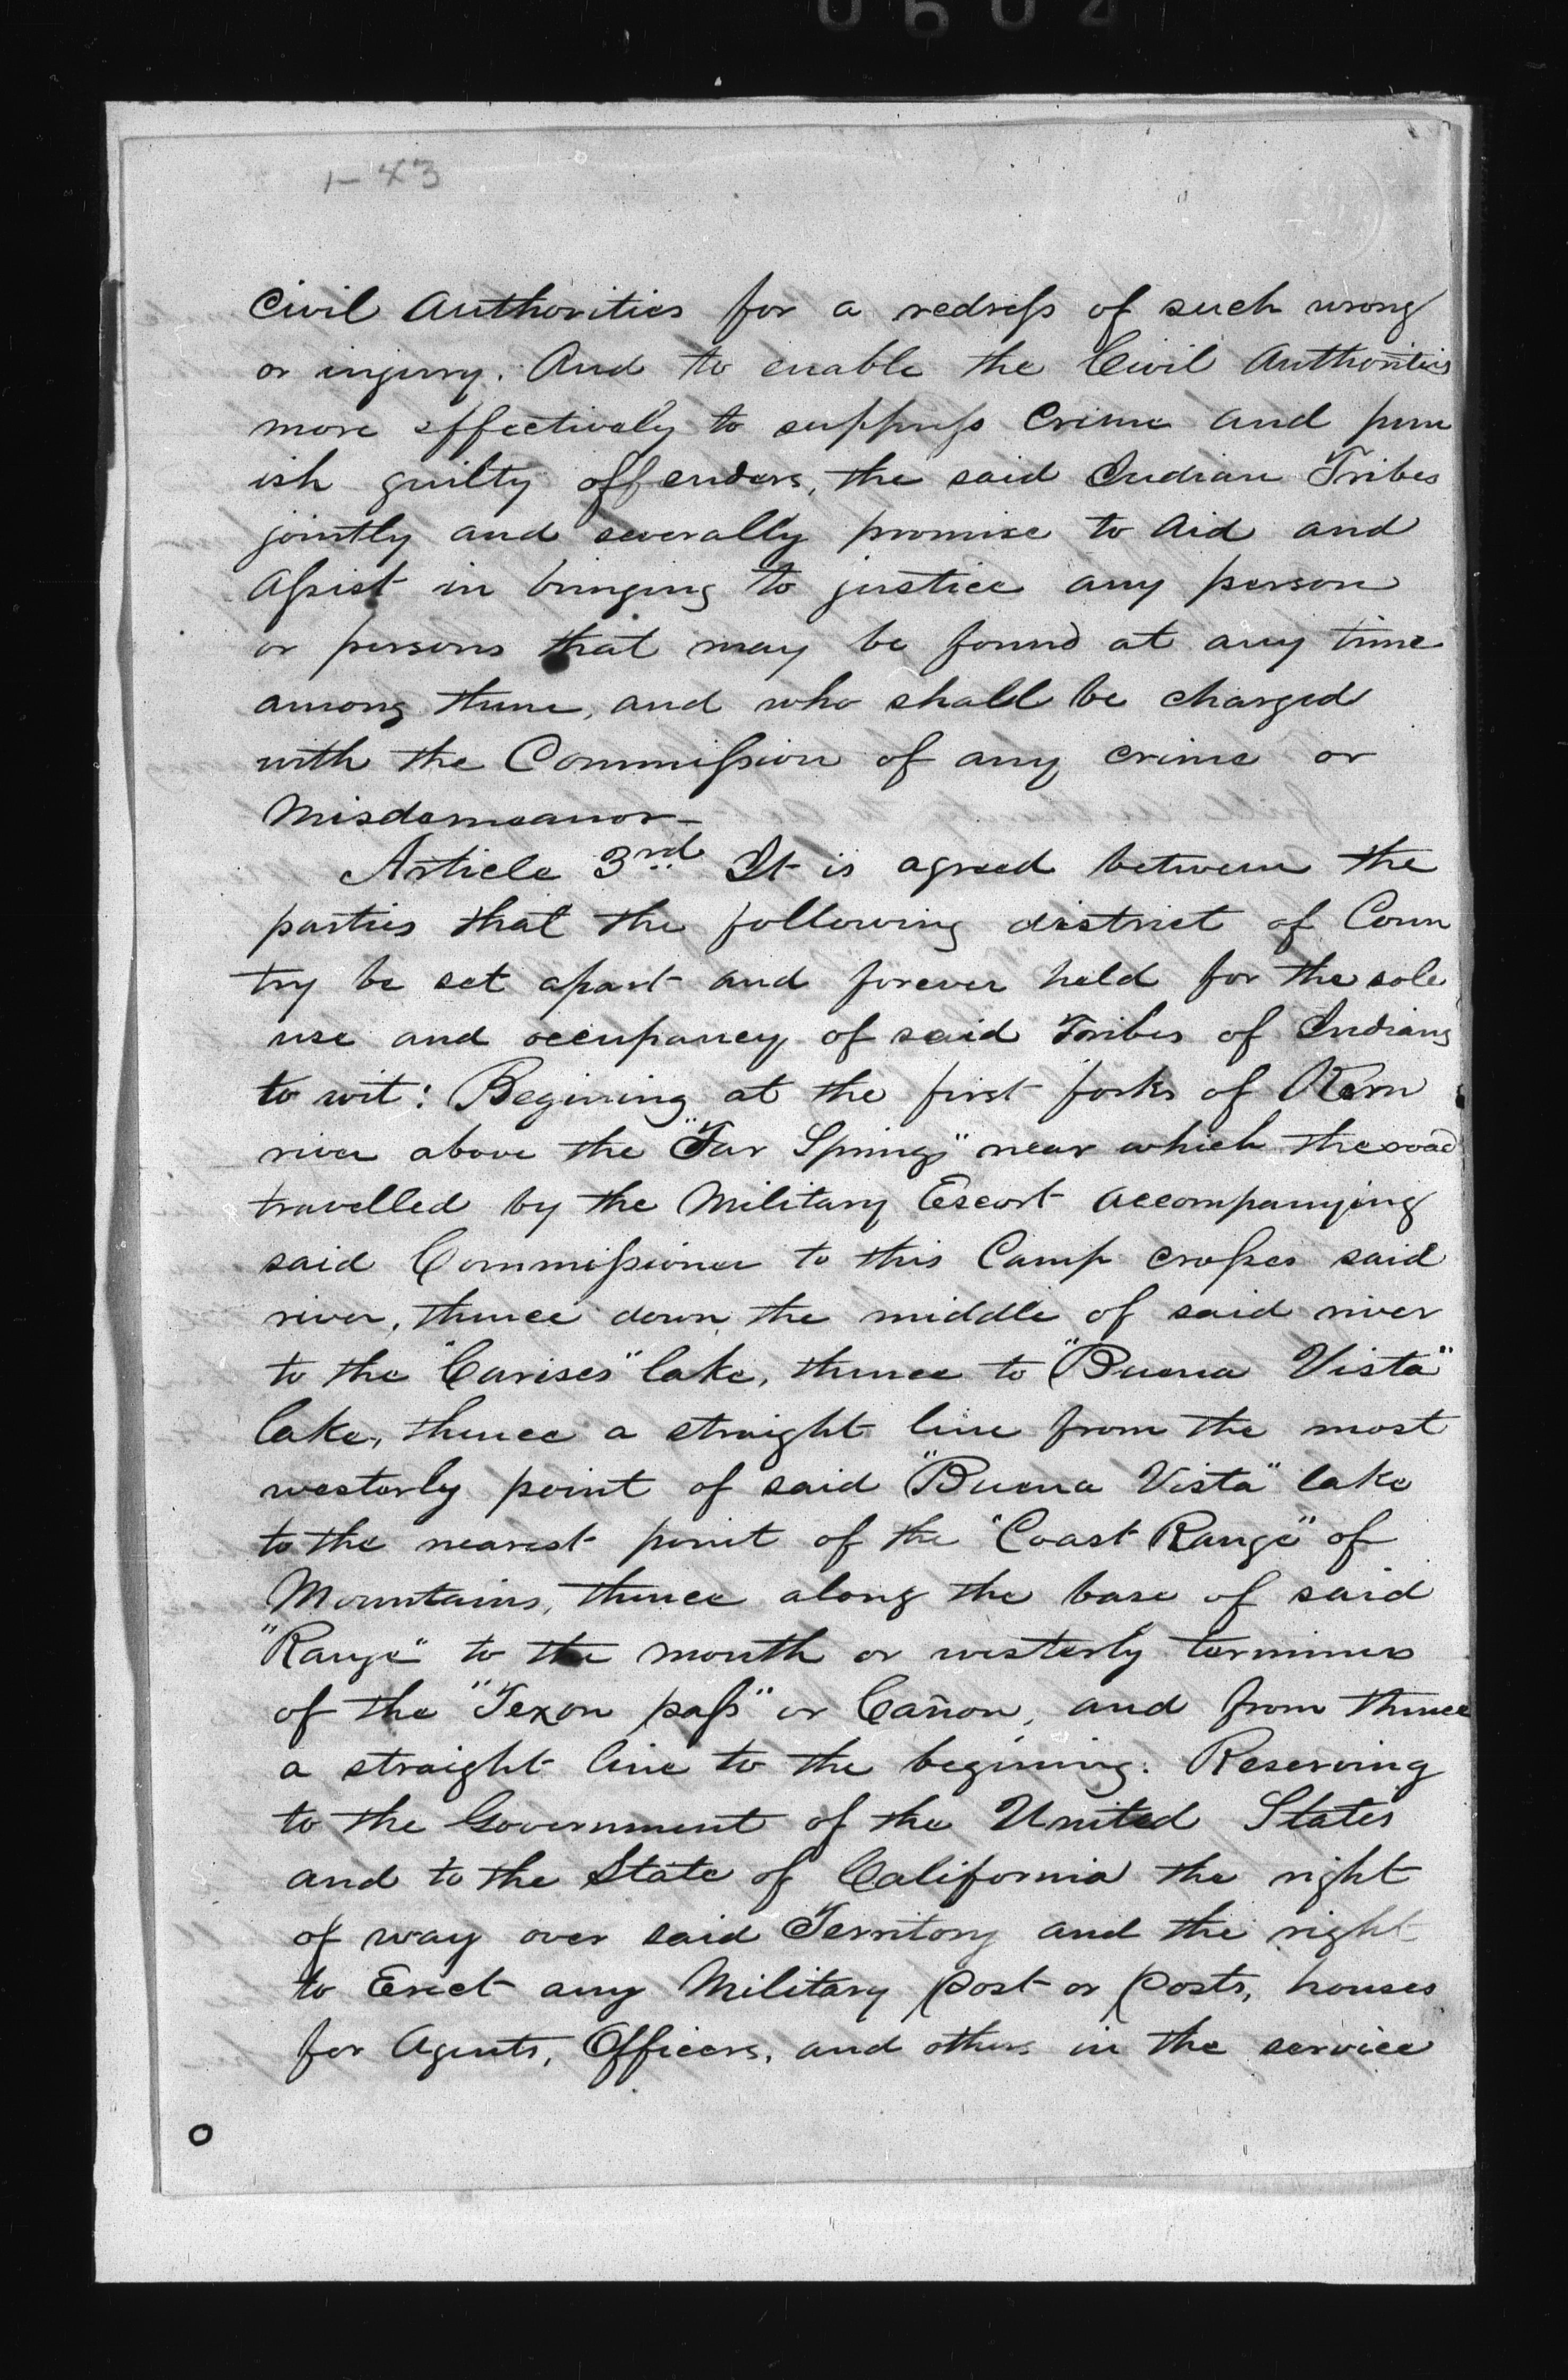 0604
1-43
Civil Authorities for a redress of such wrong
or injury. And to enable the Civil Authorities
more effectively to suppress Crime and pun
ish guilty offenders, the said Indian Tribes
jointly and severally promise to Aid and
Assist in bringing to justice any person
or persons that may be found at any time
among them, and who shall be charged
with the Commission of any crime or
Misdemeanor_
Article 3rd It is agreed between the
parties that the following district of Coun
try be set apart and forever held for the sole
use and occupancy of said Tribes of Indians
to wit: Begining at the first forks of Kern
river above the "Tar Springs" near which the road
travelled by the Military Escort accompanying
said Commissioner to this Camp crosses said
river, thence down the middle of said river
to the "Carises" lake, thence to "Buena Vista"
lake, thence a straight line from the most
westerly point of said "Buena Vista" lake
to the nearest point of the "Coast Range" of
Mountains, thence along the base of said
"Range" to the mouth or westerly terminus
of the "Texon pass" or Cañon, and from thence
a straight line to the begining. Reserving
to the Government of the United States
and to the State of California the right
of way over said Territory and the right
to Erect any Military post or posts, houses
for Agents, Officers, and others in the service